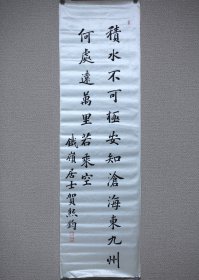 積水不可極安知滄海東九州
何處遠萬里若乘空
鐵嶺居士賀熙鈞